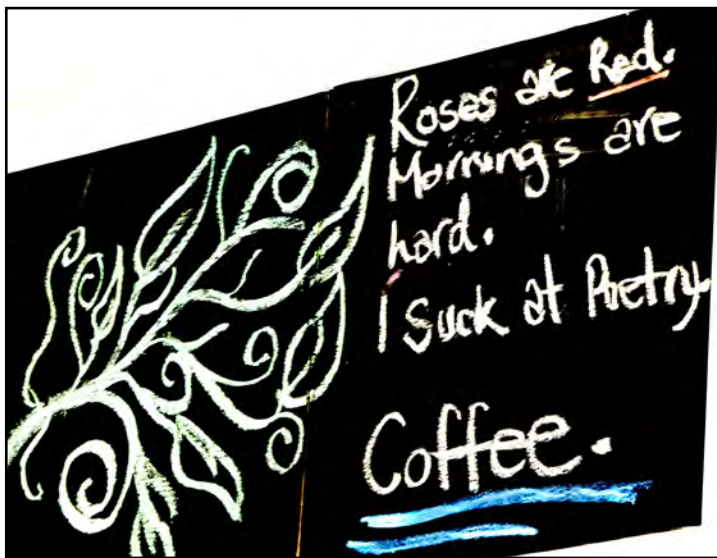 Roses are Red.
Mornings are
hard.
I Suck at Poetry.
Coffee.